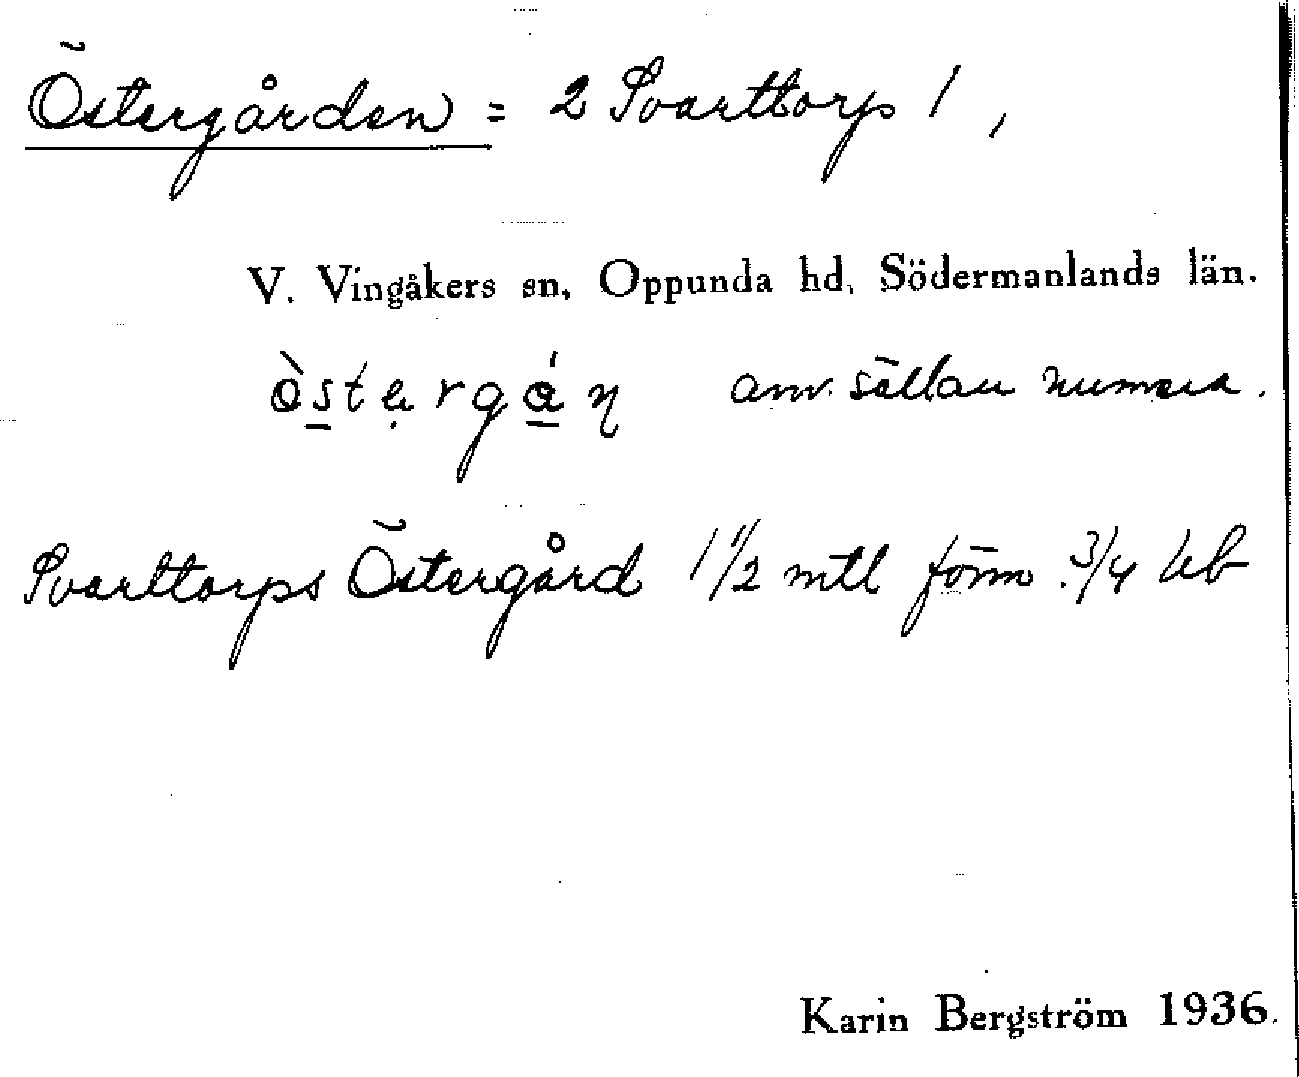 Östergården = 2 Svarttorp 1,
V. Vingåkers sn, Oppunda hd, Södermanlands län.
anv. sällan numera.
Svarttorps Östergård 1 1/2 mtl förm. 3/4 kb
Karin Bergström 1936.